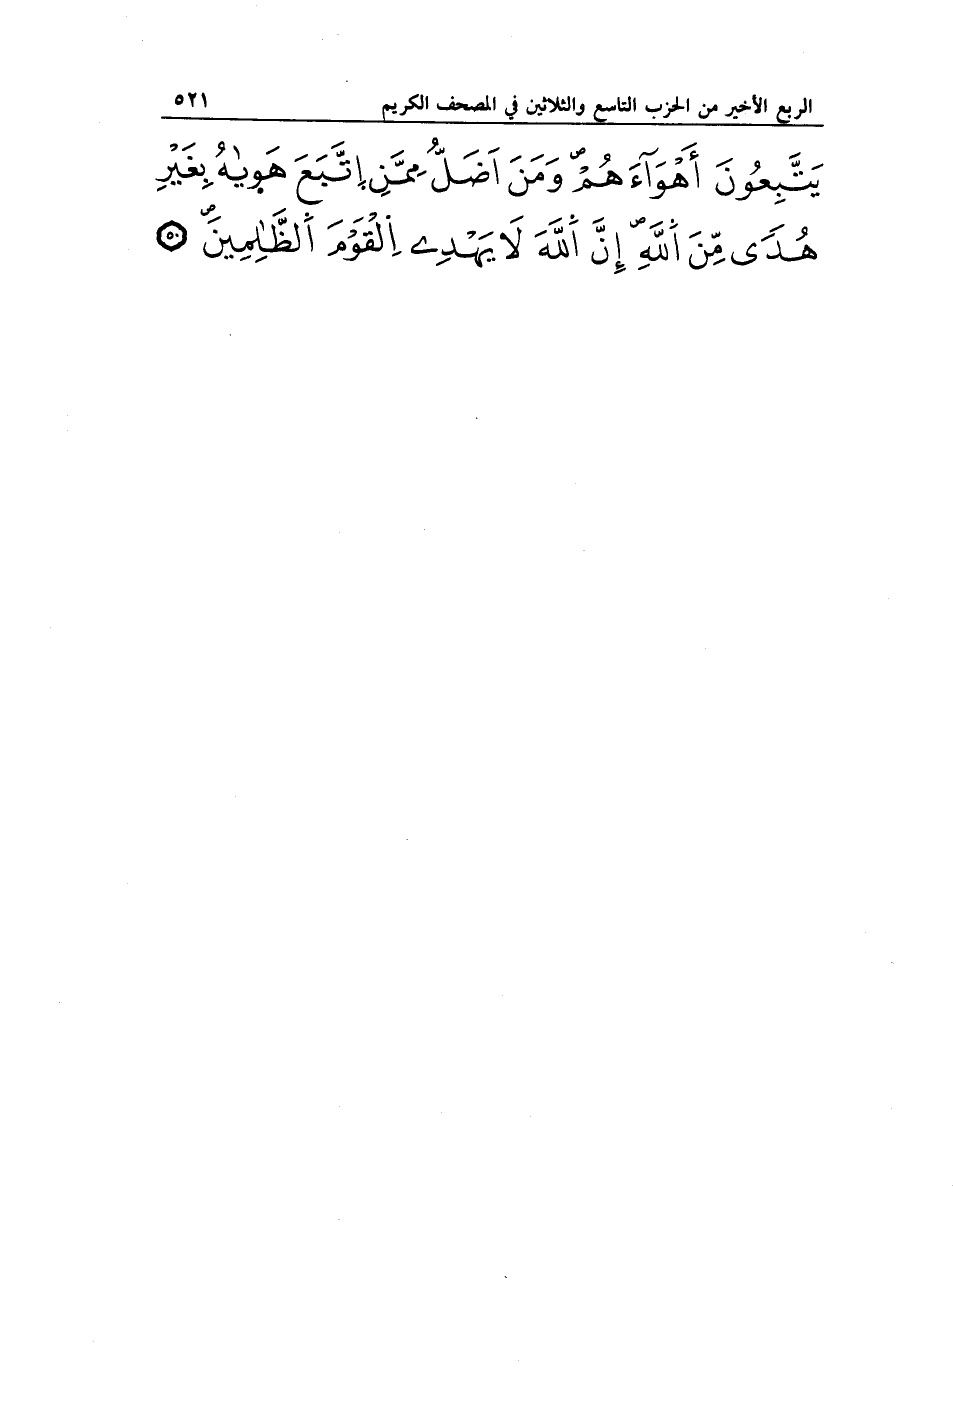 الربع الأخير من الحزب التاسع والثلاثين في المصحف الكريم ٥٢١
يَتَّبِعُونَ أَهْوَآءَهُمْۖ وَمَنَ اَضَلُّ مِمَّنِ اِتَّبَعَ هَوٜيٰهُ بِغَيْرِ
هُدىً مِّنَ اَ۬للَّهِۖ إِنَّ اَ۬للَّهَ لَا يَهْدِے اِ۬لْقَوْمَ اَ۬لظَّٰلِمِينَۖ ٥٠